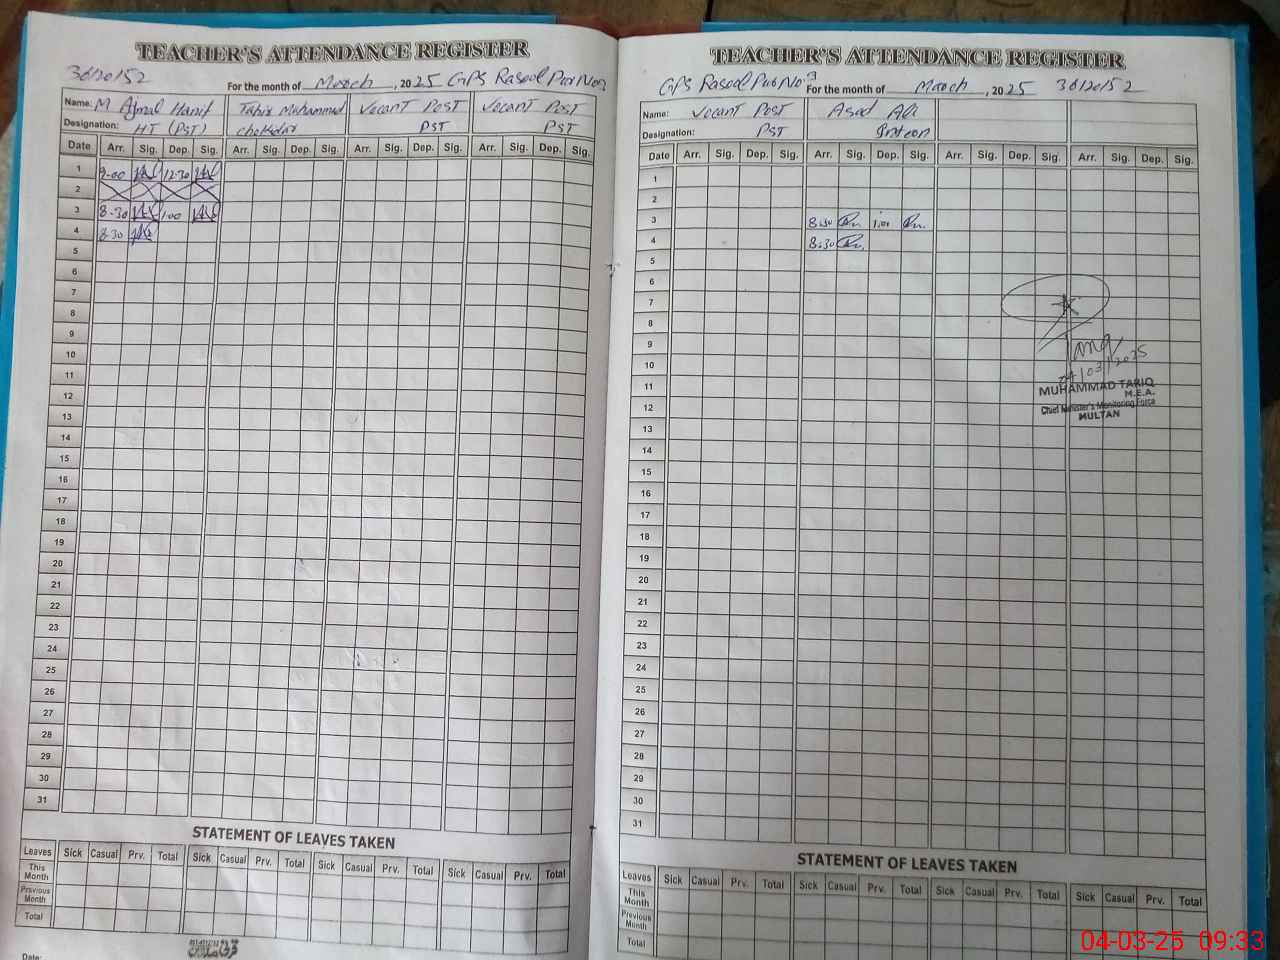 TEACHER'S ATTENDANCE REGISTER
36120152 For the month of March, 2025 GPS Rasool Pur No 3
Name: M Ajmal Hanif Tahir Muhammad Vecant Post Vecant Post
Designation: HT (PST) chokidar PST PST
Date Arr. Sig. Dep. Sig. Arr. Sig. Dep. Sig. Arr. Sig. Dep. Sig. Arr. Sig. Dep. Sig.
1 9-00 12-30
2
3 8-30 1:00
4 8-30
5
6
7
8
9
10
11
12
13
14
15
16
17
18
19
20
21
22
23
24
25
26
27
28
29
30
31
STATEMENT OF LEAVES TAKEN
Leaves Sick Casual Prv. Total Sick Casual Prv. Total Sick Casual Prv. Total Sick Casual Prv. Total
This Month
Previous Month
Total
Date:
TEACHER'S ATTENDANCE REGISTER
GPS Rasool Pur No. 3 For the month of March, 2025 36120152
Name: Vecant Post Asad Ali
Designation: PST
Date Arr. Sig. Dep. Sig. Arr. Sig. Dep. Sig. Arr. Sig. Dep. Sig. Arr. Sig. Dep. Sig.
1
2
3 8:30 1:00
4 8:30
5
6
7
8
9
10
11
12
13
14
15
16
17
18
19
20
21
22
23
24
25
26
27
28
29
30
31
04/03/2025
MUHAMMAD TARIQ
M.E.A.
Chief Minister's Monitoring Force
MULTAN
STATEMENT OF LEAVES TAKEN
Leaves Sick Casual Prv. Total Sick Casual Prv. Total Sick Casual Prv. Total Sick Casual Prv. Total
This Month
Previous Month
Total
04-03-25 09:33